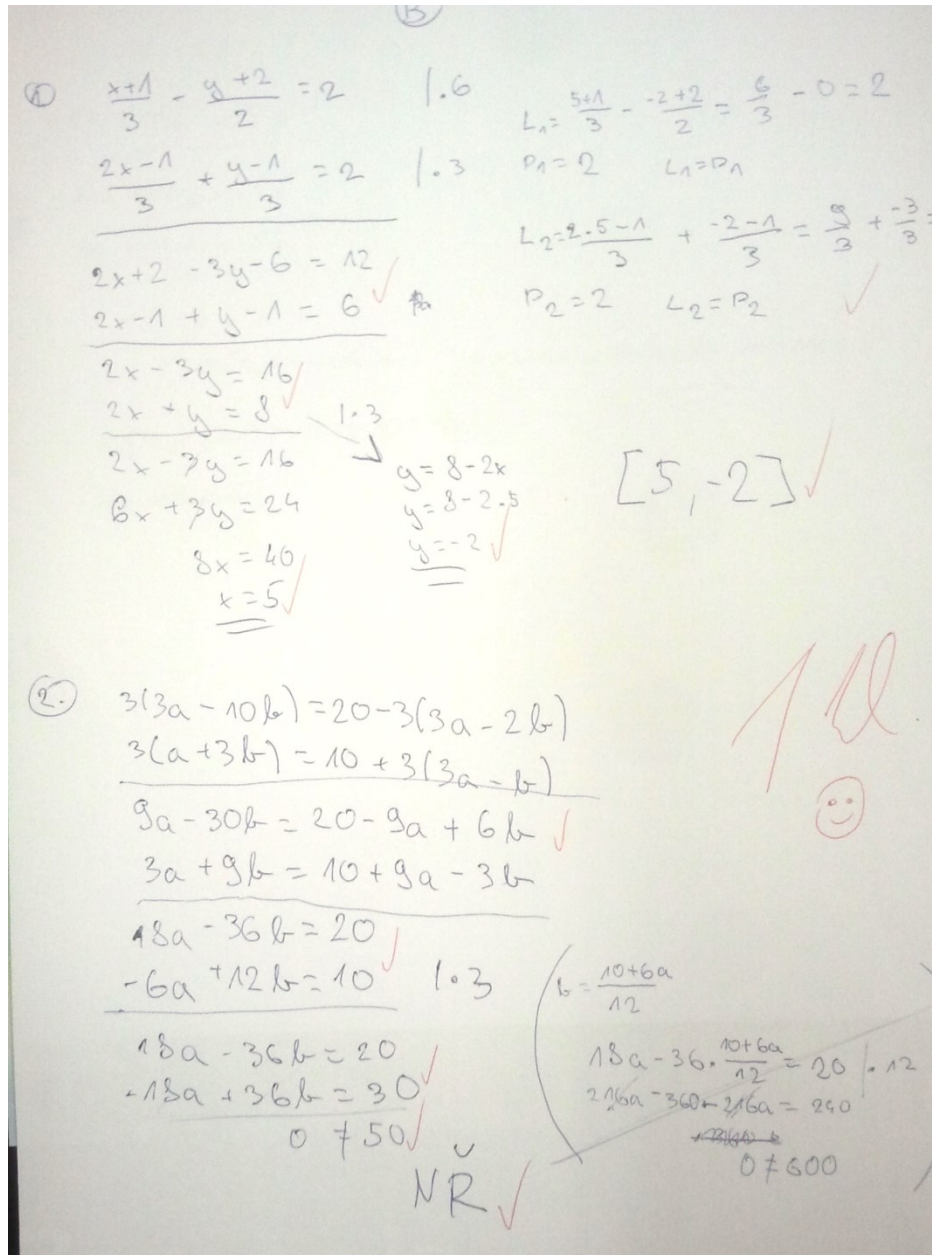 B
① (x+1)/3 - (y+2)/2 = 2 |·6
(2x-1)/3 + (y-1)/3 = 2 |·3
2x+2 -3y-6 = 12
2x-1 + y-1 = 6
2x - 3y = 16
2x + y = 8 |·3
2x - 3y = 16
6x + 3y = 24
8x = 40
x = 5
y = 8-2x
y = 8-2·5
y = -2
L₁ = (5+1)/3 - (-2+2)/2 = 6/3 - 0 = 2
P₁ = 2 L₁=P₁
L₂ = (2·5-1)/3 + (-2-1)/3 = 9/3 + (-3)/3 =
P₂ = 2 L₂ = P₂
[5,-2]
②. 3(3a - 10b) = 20-3(3a - 2b)
3(a+3b) = 10 + 3(3a - b)
9a - 30b = 20 - 9a + 6b
3a + 9b = 10 + 9a - 3b
18a - 36b = 20
-6a + 12b = 10 |·3
18a - 36b = 20
-18a + 36b = 30
0 ≠ 50
NŘ
b = (10+6a)/12
18a - 36·(10+6a)/12 = 20 |·12
216a - 360 - 216a = 240
0 ≠ 600